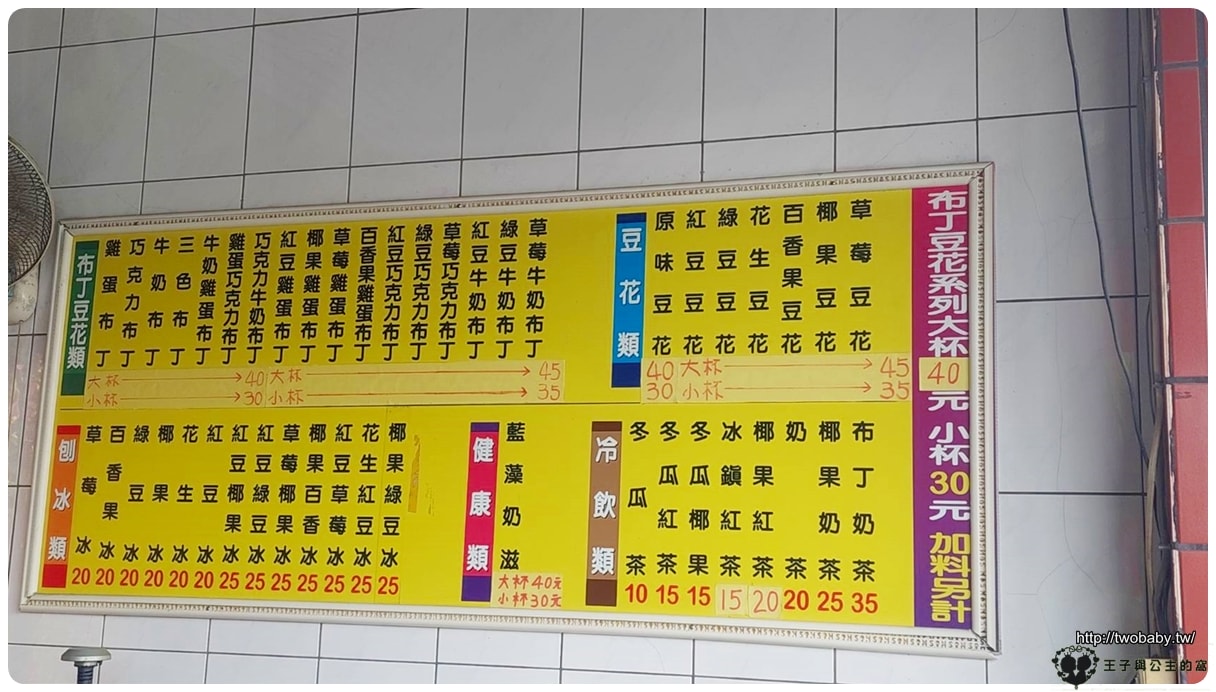 布丁豆花類
雞蛋布丁
巧克力布丁
牛奶布丁
三色布丁
牛奶雞蛋布丁
雞蛋巧克力布丁
巧克力牛奶布丁
紅豆雞蛋布丁
椰果雞蛋布丁
草莓雞蛋布丁
百香果雞蛋布丁
紅豆巧克力布丁
綠豆巧克力布丁
草莓巧克力布丁
紅豆牛奶布丁
綠豆牛奶布丁
草莓牛奶布丁
大杯→40 大杯→45
小杯→30 小杯→35
豆花類
原味豆花
紅豆豆花
綠豆豆花
花生豆花
百香果豆花
椰果豆花
草莓豆花
40 大杯→45
30 小杯→35
刨冰類
草莓冰 20
百香果冰 20
綠豆冰 20
椰果冰 20
花生冰 20
紅豆冰 20
紅豆椰果冰 25
紅豆綠豆冰 25
草莓椰果冰 25
椰果百香冰 25
紅豆草莓冰 25
花生紅豆冰 25
椰果綠豆冰 25
健康類
藍藻奶滋
大杯40元
小杯30元
冷飲類
冬瓜茶 10
冬瓜紅茶 15
冬瓜椰果 15
冰鎮紅茶 15
椰果紅茶 20
奶茶 20
椰果奶茶 25
布丁奶茶 35
布丁豆花系列大杯40元 小杯30元 加料另計
http://twobaby.tw/
王子與公主的窩